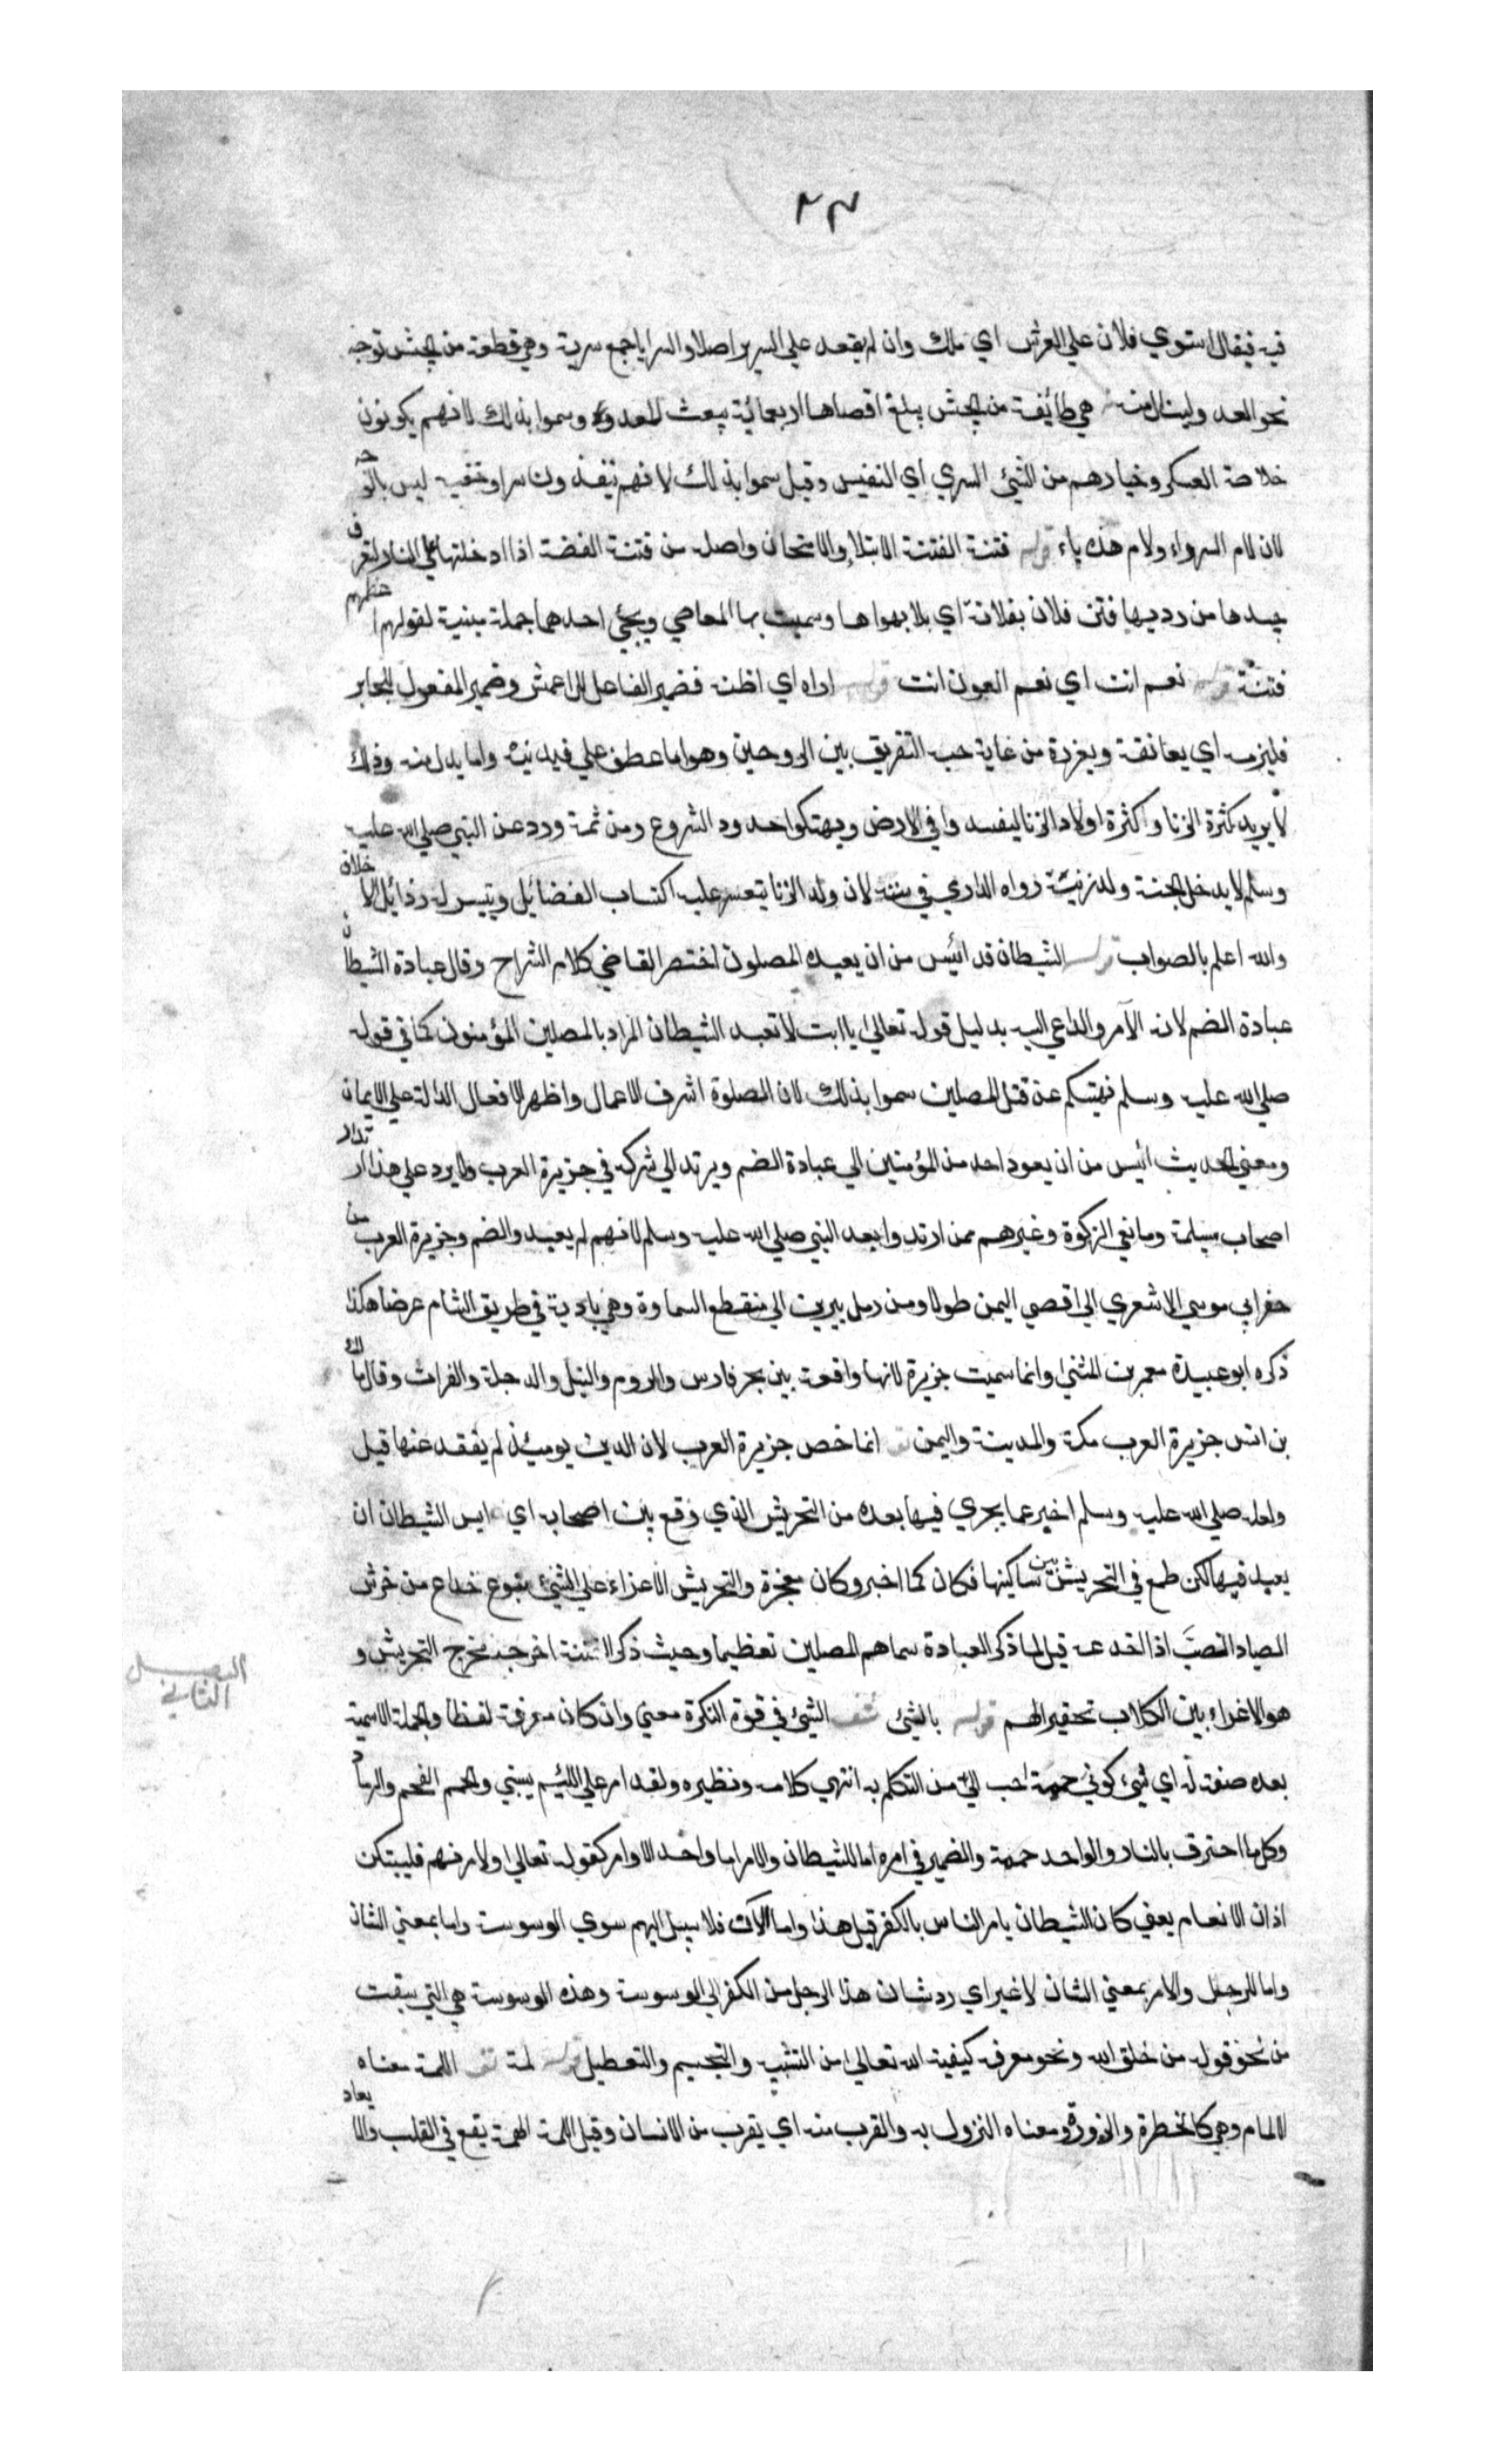 ٢٣
فيه فيقال استوي فلان علي العرش اي ملك وان لم يقعد علي السرير اصلا والسرايا جمع سرية وهي قطعة من الجيش توجه
نحو العدو لينال منه هي طائفة من الجيش يبلغ اقصاها اربعمائة يبعث للعدو وسموا بذلك لانهم يكونون
خلاصة العسكر وخيارهم من الشيئ السري اي النفيس وقيل سموا بذلك لانهم ينفذون سرا وخفية ليس بالوجه
لان لام السر راء ولام هذه ياء قوله فتنة الفتنة الابتلاء والامتحان واصله من فتنة الفضة اذا ادخلتها علي النار لتعرف
جيدها من رديها فتن فلان بفلانة اي بلا بهواها وسميت بها المعاصي ويجئ احدهما جملة مبينة لقوله اعظمهم
فتنة قوله نعم انت اي نعم العون انت قوله اراه اي اظنه فضمير الفاعل للاعمش وضمير المفعول لجابر
فليزمه اي يعانقه من غاية حب التفريق بين الزوجين وهو اما عطف علي فيدنيه واما بدل منه وذلك
لا يريد كثرة الزنا وكثرة اولاد الزنا ليفسدوا في الارض ويهتكوا حدود الشروع ومن ثمة ورد عن النبي صلي الله عليه
وسلم لا يدخل الجنة ولد زنية رواه الدارمي في سننه لان ولد الزنا يتعسر عليه اكتساب الفضائل ويتيسر له رذائل الاخلاق
والله اعلم بالصواب قوله الشيطان قد ائيس من ان يعبده المصلون اختصر القاضي كلام الشراح وقال عبادة الشيطان
عبادة الصنم لانه الآمر والداعي اليه بدليل قوله تعالي يا ابت لا تعبد الشيطان المراد بالمصلين المؤمنون كما في قوله
صلي الله عليه وسلم نهيتكم عن قتل المصلين سموا بذلك لان الصلوة اشرف الاعمال واظهر الافعال الدالة علي الايمان
ومعني الحديث ائيس من ان يعود احد من المؤمنين الي عبادة الصنم ويرتد الي شركه في جزيرة العرب ولا يرد علي هذا ارتداد
اصحاب مسيلمة ومانعي الزكوة وغيرهم ممن ارتدوا بعد النبي صلي الله عليه وسلم لانهم لم يعبدوا الصنم وجزيرة العرب من
حفر ابي موسي الاشعري الي اقصي اليمن طولا ومن رمل يبرين الي منقطع السماوة وهي بادية في طريق الشام عرضا هكذا
ذكره ابو عبيدة معمر بن المثني وانما سميت جزيرة لانها واقعة بين بحر فارس والروم والنيل والدجلة والفرات وقال مالك
بن انس جزيرة العرب مكة والمدينة واليمن انما خص جزيرة العرب لان الدين يومئذ لم يفقد عنها قيل
ولعله صلي الله عليه وسلم اخبر عما يجري فيها بعده من التحريش الذي وقع بين اصحابه اي ايس الشيطان ان
يعبد فيها لكن طمع في التحريش بين ساكنيها فكان كما اخبر وكان معجزة والتحريش الاغراء علي الشيئ بنوع خداع من حرش
الصياد الضبّ اذا خدعه قيل لما ذكر العبادة سماهم المصلين تعظيما وحيث ذكر الفتنة اخرجه مخرج التحريش و
هو الاغراء بين الكلاب تحقيرا لهم قوله بالشئ شف الشئ في قوة النكرة معني وان كان معرفة لفظا والجملة الاسمية
بعده صفة له اي شئ كوني حممة احب اليّ من التكلم به انتهي كلامه ونظيره ولقد امر علي اللئيم يسبني والحمم الفحم والرماد
وكل ما احترق بالنار والواحد حممة والضمير في امره اما للشيطان والامر اما واحد الاوامر كقوله تعالي ولآمرنهم فليبتكن
اذان الانعام يعني كان الشيطان يامر الناس بالكفر قبل هذا واما الآن فلا سبيل اليهم سوي الوسوسة واما بمعني الشان
واما للرجل والامر بمعني الشان لا غير اي رد شان هذا الرجل من الكفر الي الوسوسة وهذه الوسوسة هي التي سبقت
من نحو قوله من خلق الله ونحو معرفة كيفية الله تعالي من التشبيه والتجسيم والتعطيل قوله لمة اللمة معناه
الالمام وهي كالخطرة والزورة ومعناه النزول به والقرب منه اي يقرب من الانسان وقيل اللمة الهمة يقع في القلب والايعاد
الفصل
الثاني